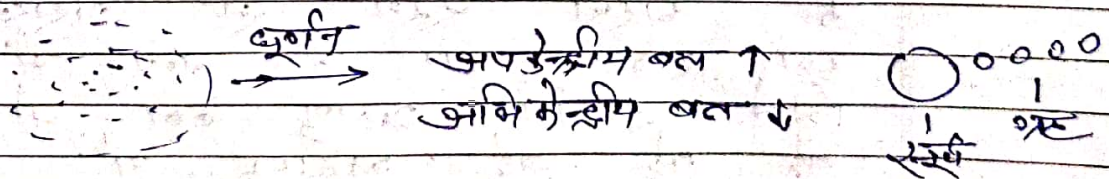 घूर्णन
अपकेन्द्रीय बल ↑
अभिकेन्द्रीय बल ↓
सूर्य
ग्रह